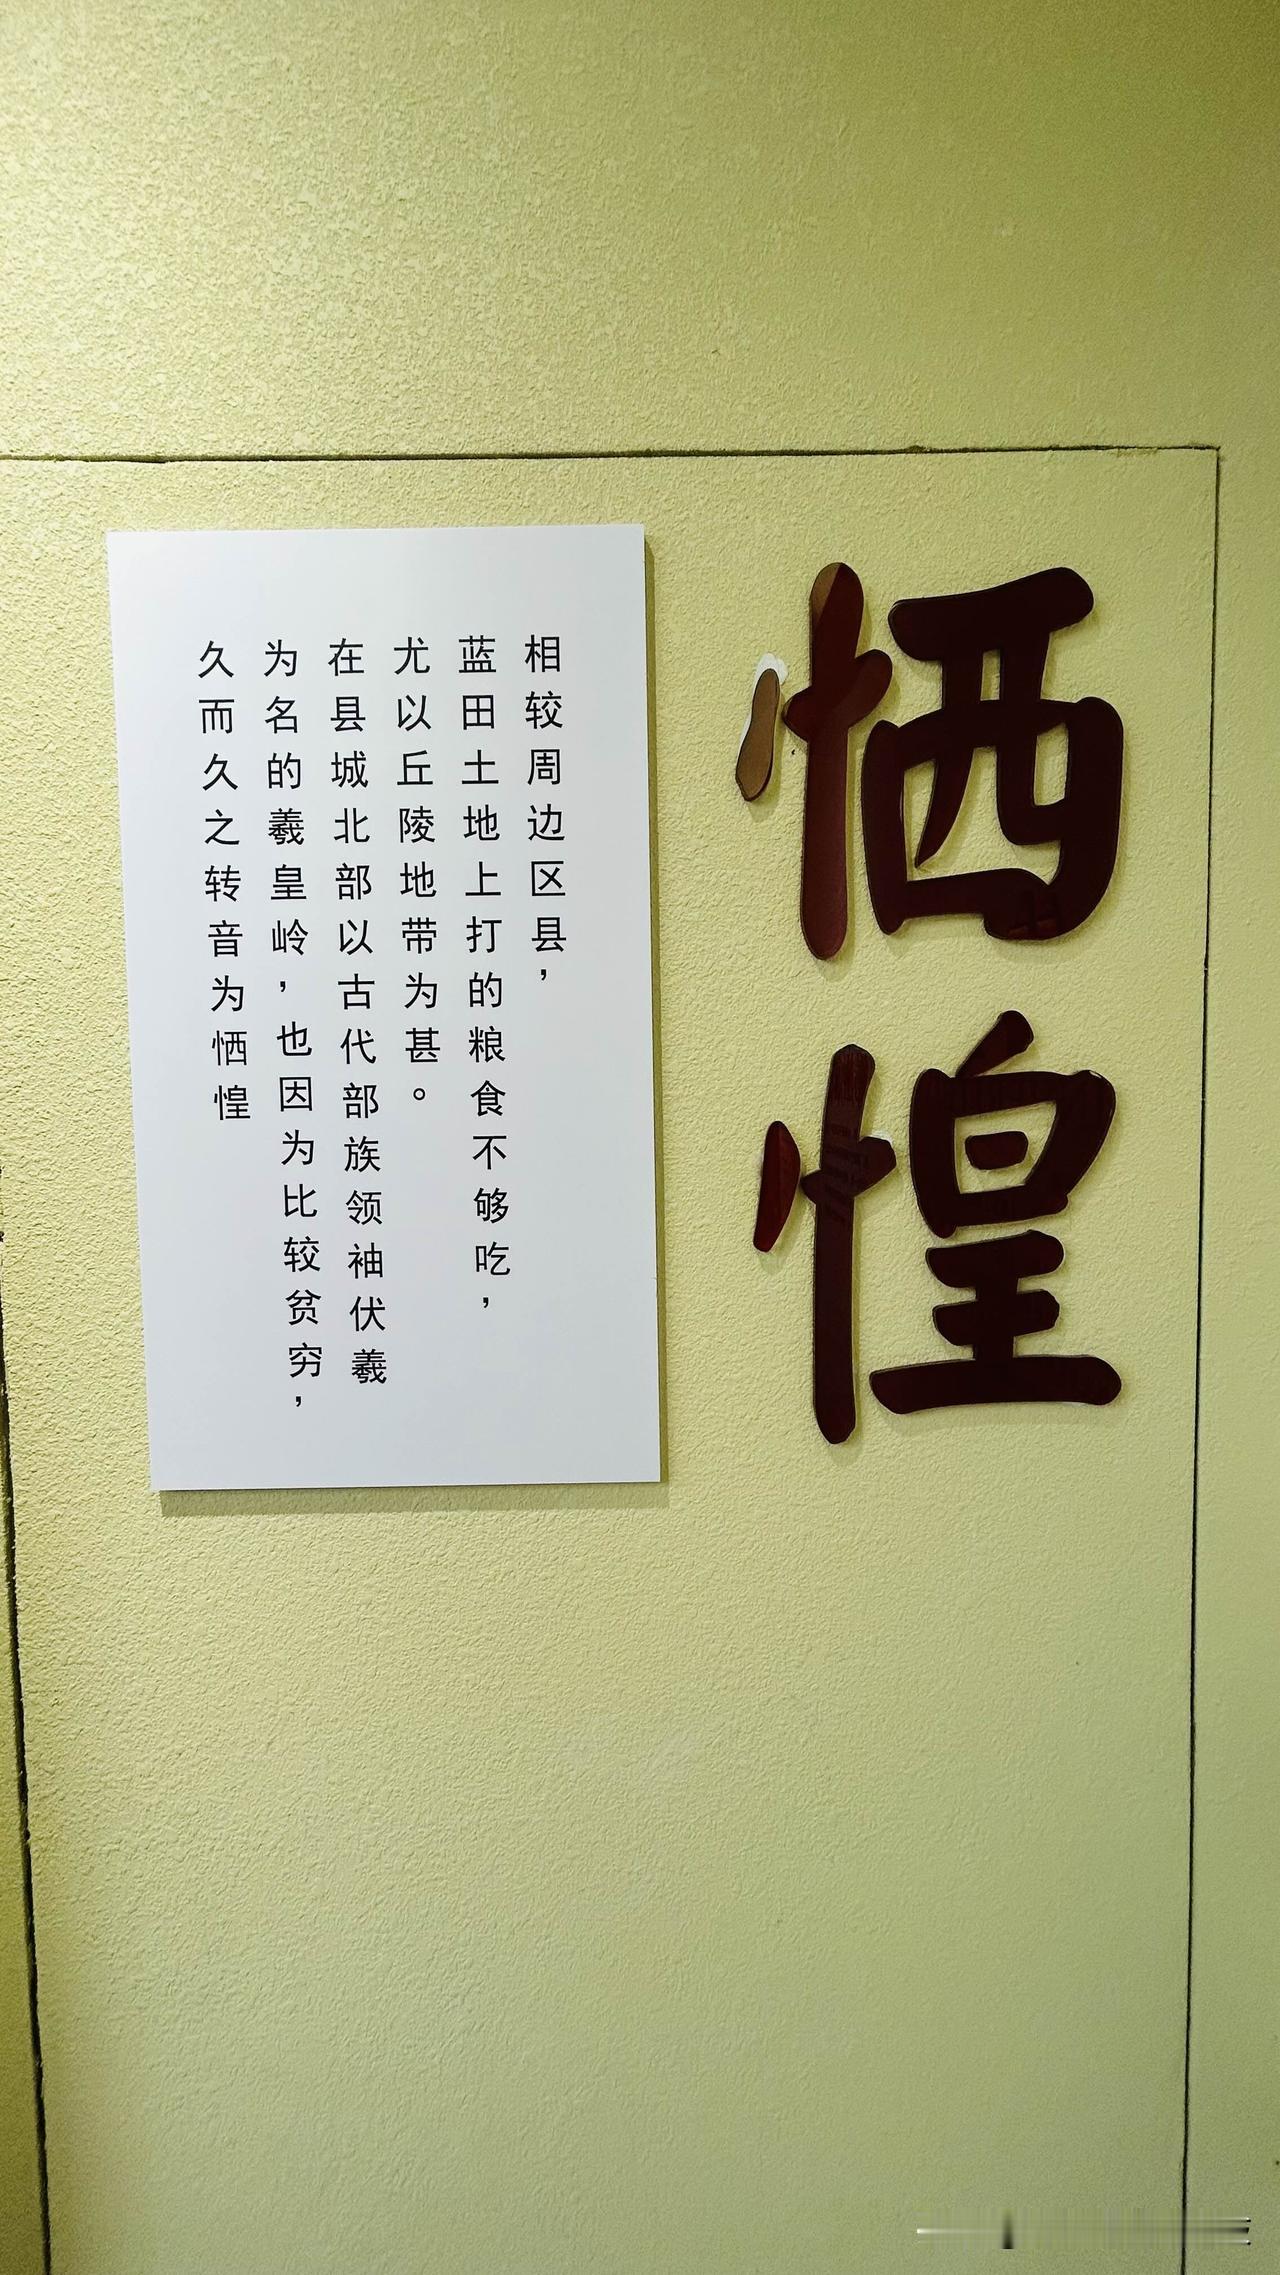 恓惶
相较周边区县，
蓝田土地上打的粮食不够吃，
尤以丘陵地带为甚。
在县城北部以古代部族领袖伏羲
为名的羲皇岭，也因为比较贫穷，
久而久之转音为恓惶